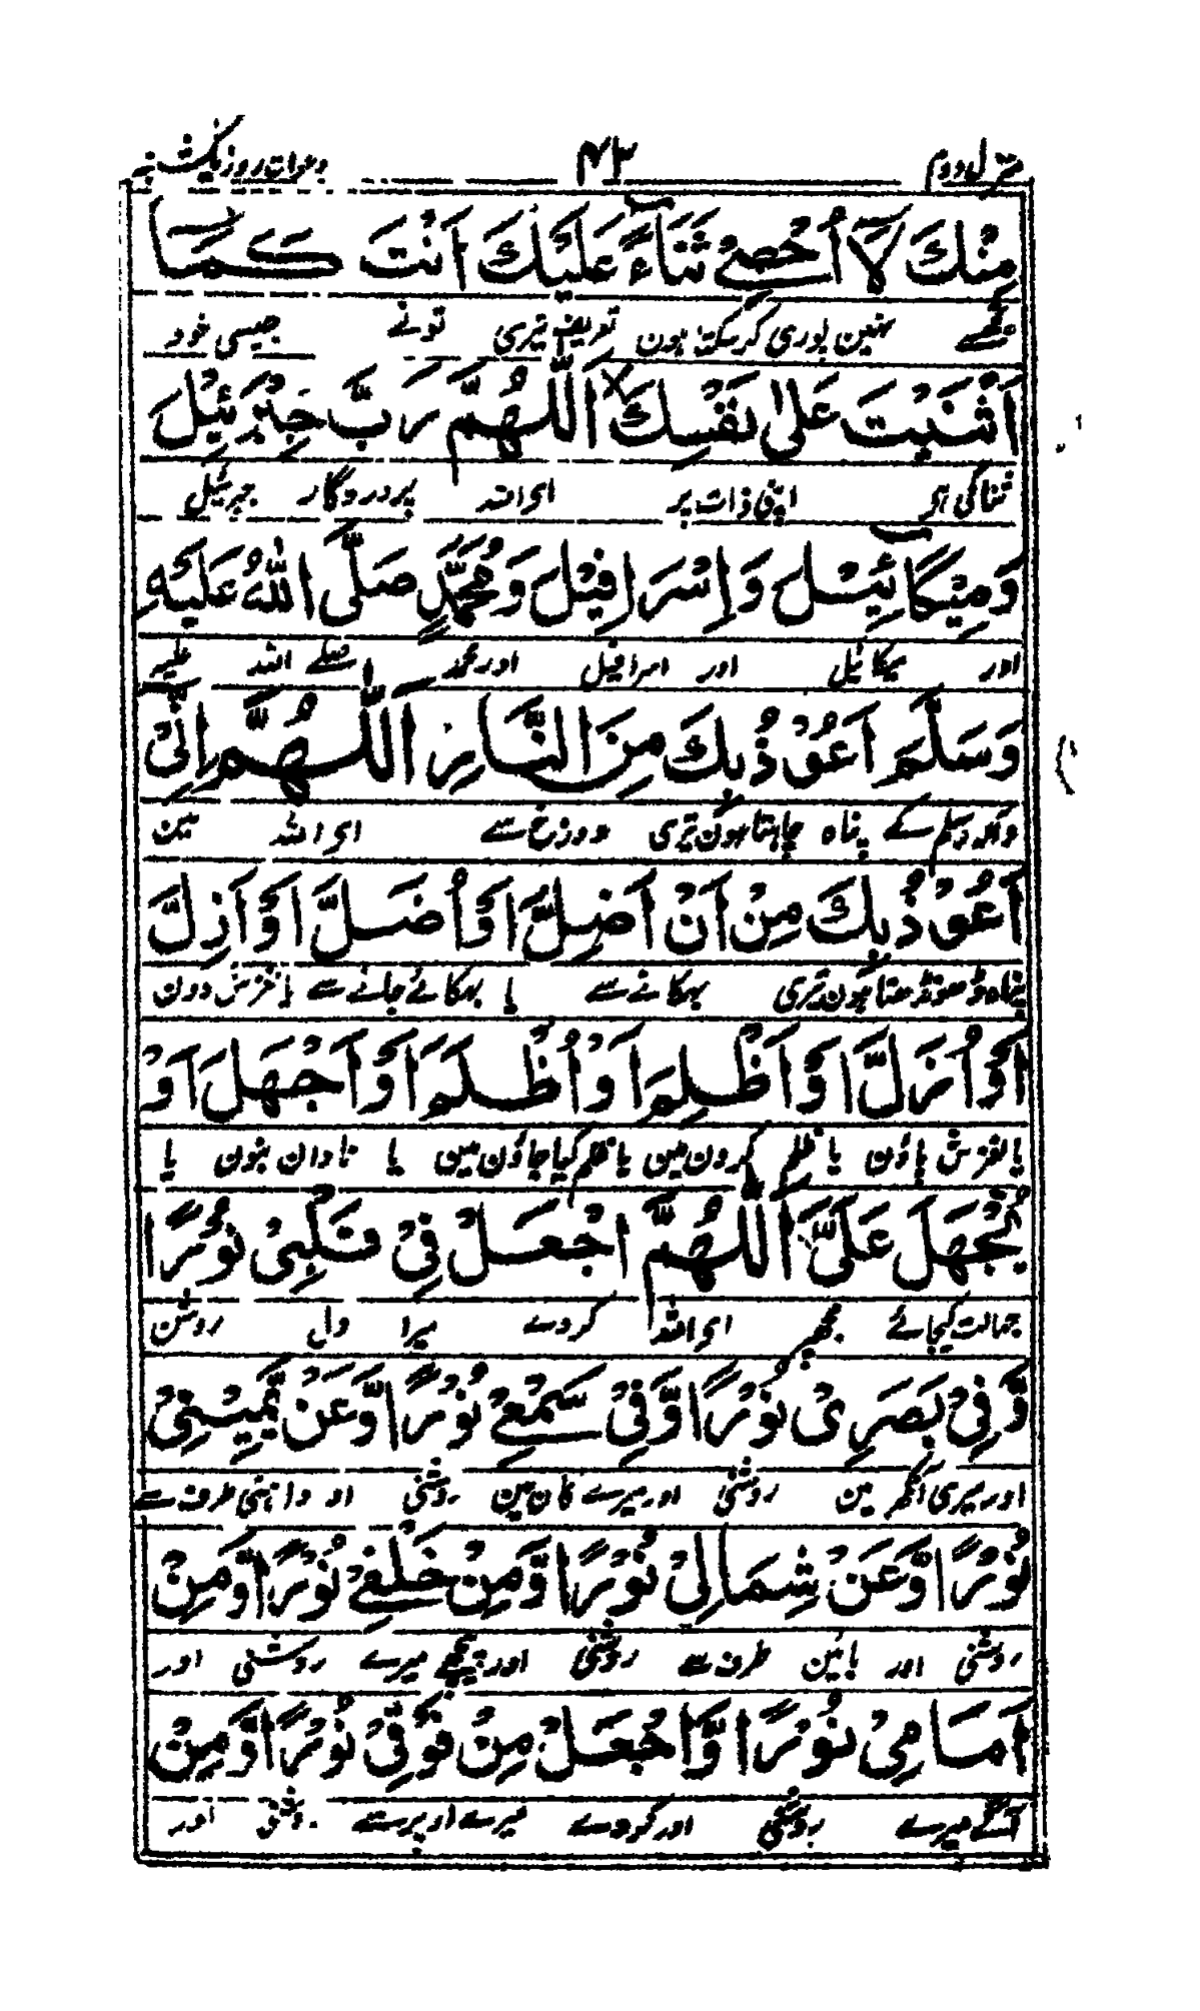 منزل دوم ۴۳ دعوات روز یکشنبہ
مِنْكَ لَآ اُحْصِیْ ثَنَآءً عَلَیْكَ اَنْتَ كَمَا
تجھسے نہین پوری کرسکتا ہون تعریف تیری تونے جیسی خود
اَثْنَیْتَ عَلٰی نَفْسِكَ اَللّٰهُمَّ رَبَّ جِبْرَئِیْلَ
ثنا کی ہو اپنی ذات پر ای اللہ پروردگار جبرئیل
وَمِیْكَآئِیْلَ وَاِسْرَافِیْلَ وَمُحَمَّدٍ صَلَّی اللّٰهُ عَلَیْهِ
اور میکائیل اور اسرافیل اور محمد صلے اللہ علیہ
وَسَلَّمَ اَعُوْذُ بِكَ مِنَ النَّارِ اَللّٰهُمَّ اِنِّیْ
وآلہ وسلم کے پناہ چاہتا ہون تیری دوزخ سے ای اللہ مین
اَعُوْذُ بِكَ مِنْ اَنْ اَضِلَّ اَوْ اُضَلَّ اَوْ اَزِلَّ
پناہ ڈھونڈھتا ہون تیری بہکانے سے یا بہکائے جانے سے یا لغزش دون
اَوْ اُزَلَّ اَوْ اَظْلِمَ اَوْ اُظْلَمَ اَوْ اَجْهَلَ اَوْ
یا لغزش پاؤن یا ظلم کرون مین یا ظلم کیا جاؤن مین یا نادان بنون یا
یُجْهَلَ عَلَیَّ اَللّٰهُمَّ اجْعَلْ فِیْ قَلْبِیْ نُوْرًا
جہالت کیجائے مجھپر ای اللہ کردے میرا دل روشن
وَّفِیْ بَصَرِیْ نُوْرًا وَّفِیْ سَمْعِیْ نُوْرًا وَّعَنْ یَّمِیْنِیْ
اور میری آنکھ مین روشنی اور میرے کان مین روشنی او داہنی طرف سے
نُوْرًا وَّعَنْ شِمَالِیْ نُوْرًا وَّمِنْ خَلْفِیْ نُوْرًا وَّمِنْ
روشنی اور بائین طرف سے روشنی اور پیچھے میرے روشنی اور
اَمَامِیْ نُوْرًا وَّاجْعَلْ مِنْ فَوْقِیْ نُوْرًا وَّمِنْ
آگے میرے روشنی اور کردے میرے اوپر سے روشنی اور